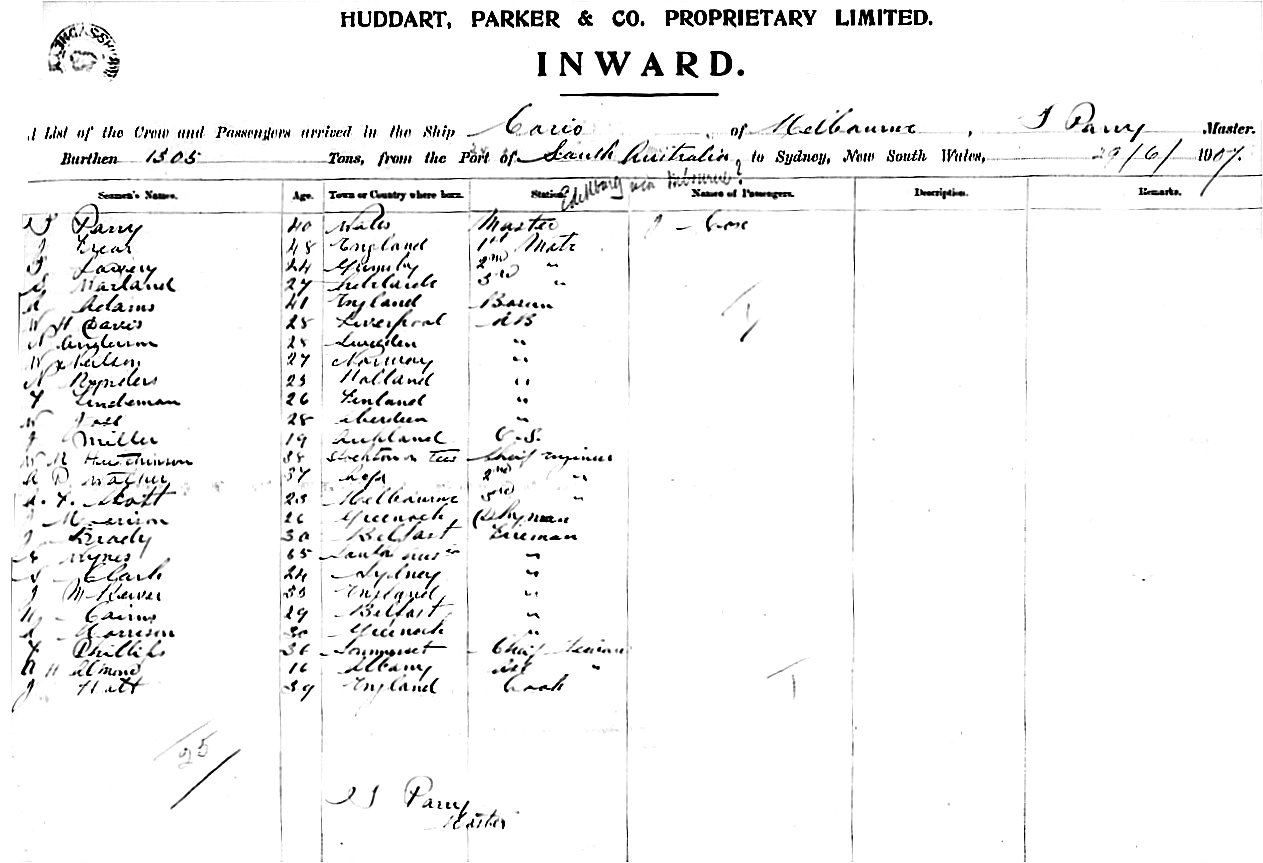 HUDDART, PARKER & CO. PROPRIETARY LIMITED.
INWARD.
A List of the Crew and Passengers arrived in the Ship Corio of Melbourne, Parry Master.
Burthen 1305 Tons, from the Port of South Australia, to Sydney, New South Wales, 29/6/1907.
Seamen's Names. Age. Town or Country where born. Station Names of Passengers. Description. Remarks.
Parry 40 Wales Master J Cox
J 48 England 1st Mate
Lowery 24 Grimsby 2nd "
Marland 27 Adelaide 3rd "
A Adams 41 England Bosun
W H Davis 28 Liverpool AB
Anderson 28 Sweden "
W Neilson 27 Norway "
N Rynders 23 Holland "
Lindeman 26 Finland "
W 28 Aberdeen "
J Miller 19 Auckland O.S.
W M Hutchinson 38 Stockton on Tees Chief Engineer
A D Walker 37 2nd "
A. Scott 23 Melbourne 3rd "
J Morrison 26 Greenock
J Brady 30 Belfast Fireman
Hynes 65 "
Clark 24 Sydney "
J 33 England "
H Cairns 29 Belfast "
A Morrison 30 Greenock "
Phillips 36 Sommerset Chief
H Almond 16 Albany "
J Hatt 39 England Cook
25
Parry
Master